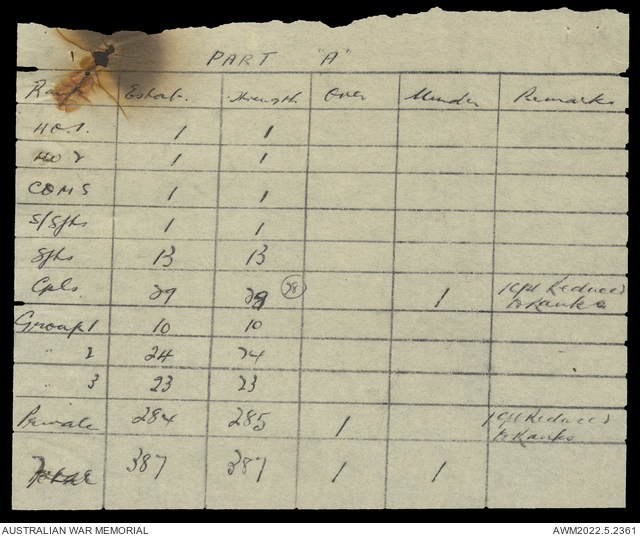 PART "A"
Rank Estab. Strength Over Under Remarks
WO.1. 1 1
WO 2 1 1
CQMS 1 1
S/Sgts 1 1
Sgts 13 13
Cpls 29 28 (28) 1 1 Cpl Reduced
to Ranks
Group 1 10 10
2 24 24
3 23 23
Private 284 285 1 1 Cpl Reduced
to Ranks
Total 387 387 1 1
AUSTRALIAN WAR MEMORIAL AWM2022.5.2361